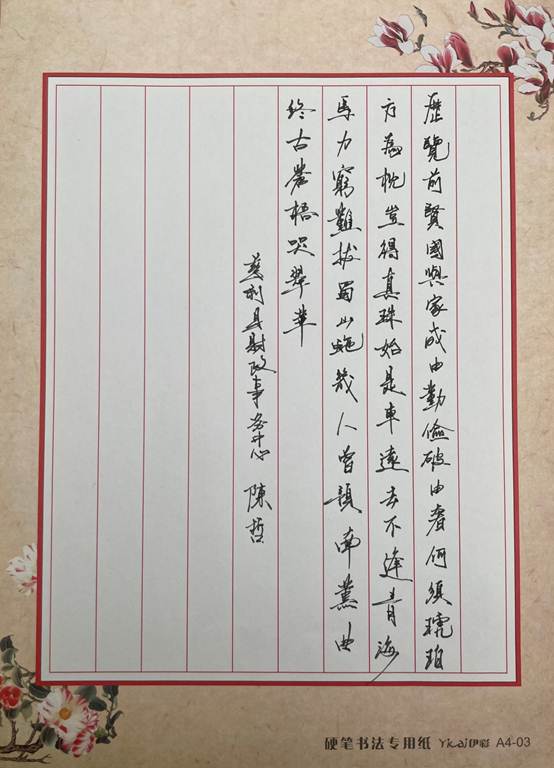 歷覽前賢國與家成由勤儉破由奢何須琥珀
方為枕豈得真珠始是車遠去不逢青海
馬力窮難拔蜀山蛇幾人曾預南薰曲
終古蒼梧哭翠華
慈利县財政事务中心 陳哲
硬笔书法专用纸 Yicai伊彩 A4-03